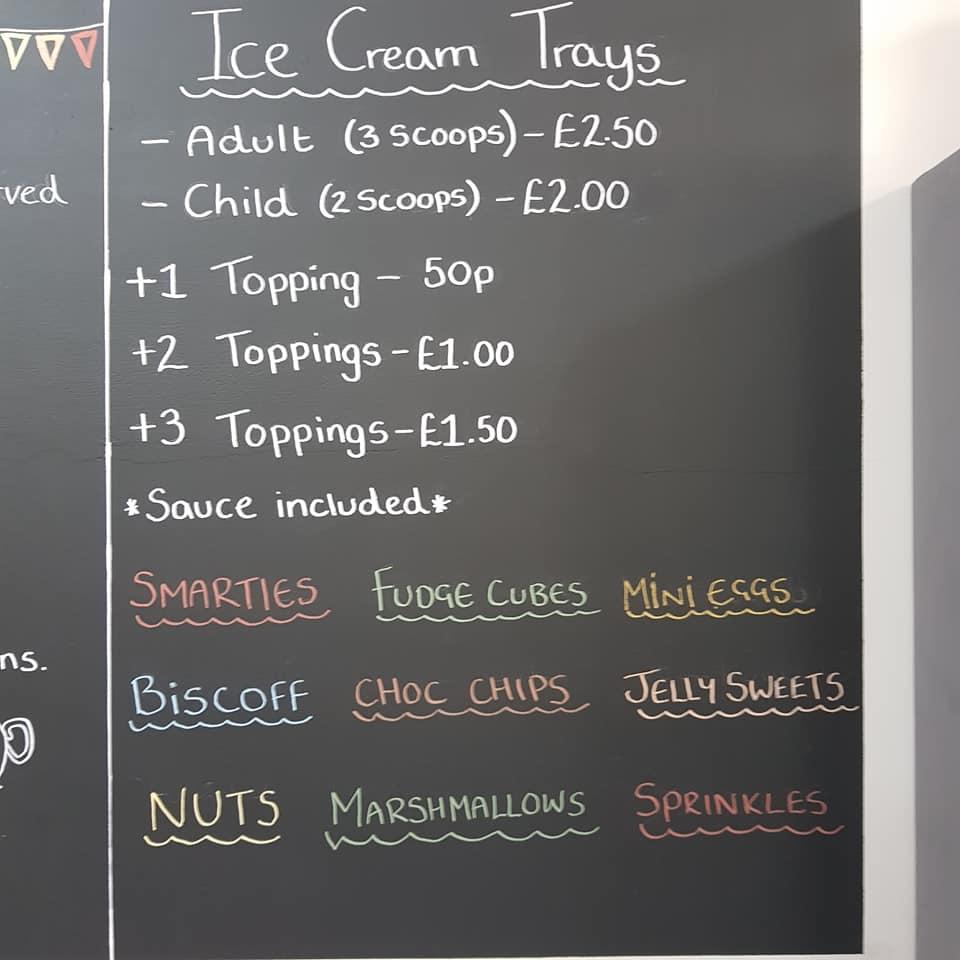 Ice Cream Trays
- Adult (3 Scoops) - £2.50
- Child (2 Scoops) - £2.00
+1 Topping - 50p
+2 Toppings - £1.00
+3 Toppings - £1.50
*Sauce included*
SMARTIES FUDGE CUBES MiNi EGGS
BiSCOFF CHOC CHIPS JELLY SWEETS
NUTS MARSHMALLOWS SPRINKLES
rved
ns.